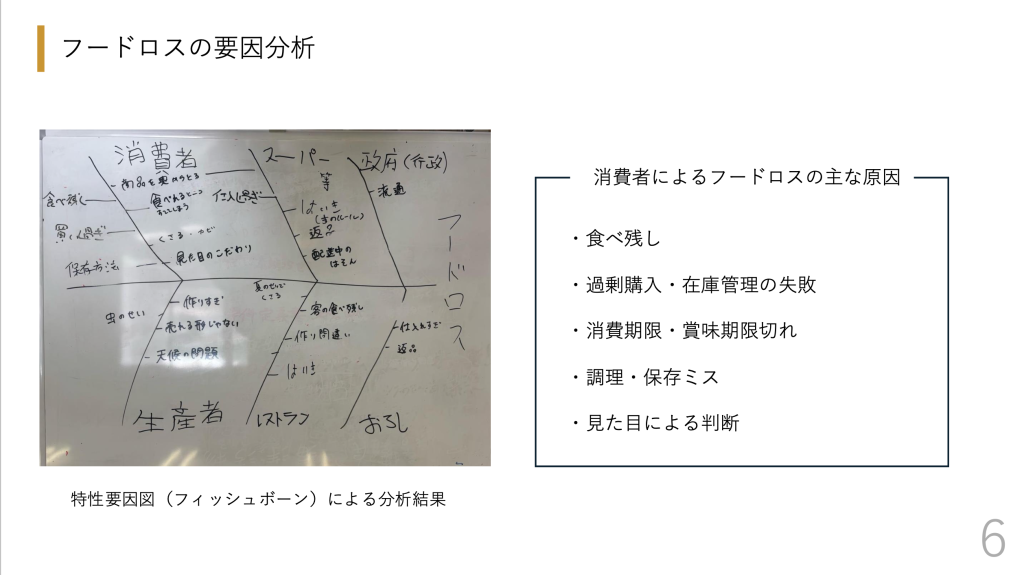 フードロスの要因分析
消費者
スーパー
等
政府(行政)
商品を奥からとる
食べ残し
食べれるところ
すててしまう
仕入れ過ぎ
流通
買い過ぎ
はいき
返品
くさる・カビ
保存方法
見た目のこだわり
配達中の
はそん
フードロス
夏のせいで
くさる
虫のせい
作りすぎ
売れる形じゃない
天候の問題
客の食べ残し
作り間違い
はいき
仕入れすぎ
返品
生産者
レストラン
おろし
特性要因図（フィッシュボーン）による分析結果
消費者によるフードロスの主な原因
・食べ残し
・過剰購入・在庫管理の失敗
・消費期限・賞味期限切れ
・調理・保存ミス
・見た目による判断
6